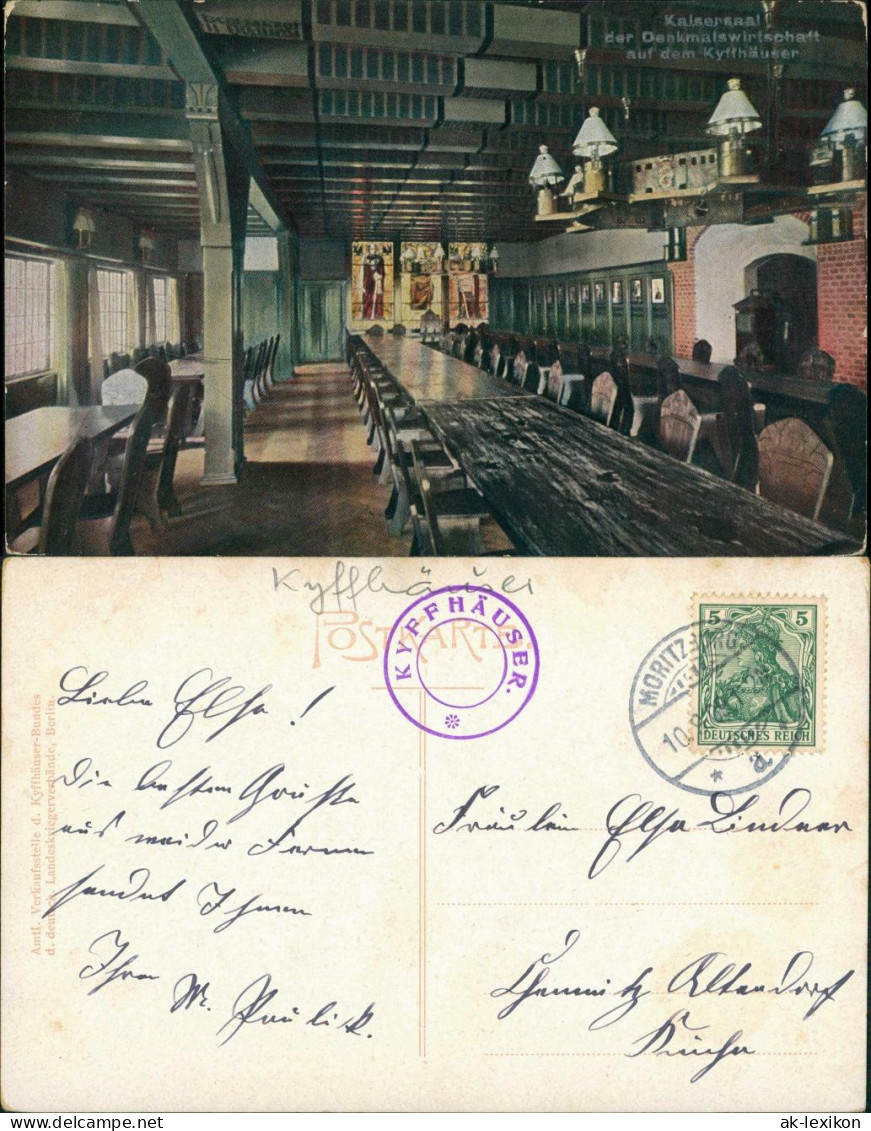 Kaisersaal
der Denkmalswirtschaft
auf dem Kyffhäuser
Kyffhäuser
POSTKARTE.
KYFFHÄUSER.
5 5
DEUTSCHES REICH
MORITZ
10.
a
Liebe Elsa!
Die besten Grüße
aus weider Fernen
sendet Ihnen
Ihre
M. Paulick.
Fräulein Elsa Lindner
Chemnitz Altendorf
Amtl. Verkaufsstelle d. Kyffhäuser-Bundes
d. deutsch. Landeskriegerverbände, Berlin.
www.ak-ansichtskarten.de
ak-lexikon